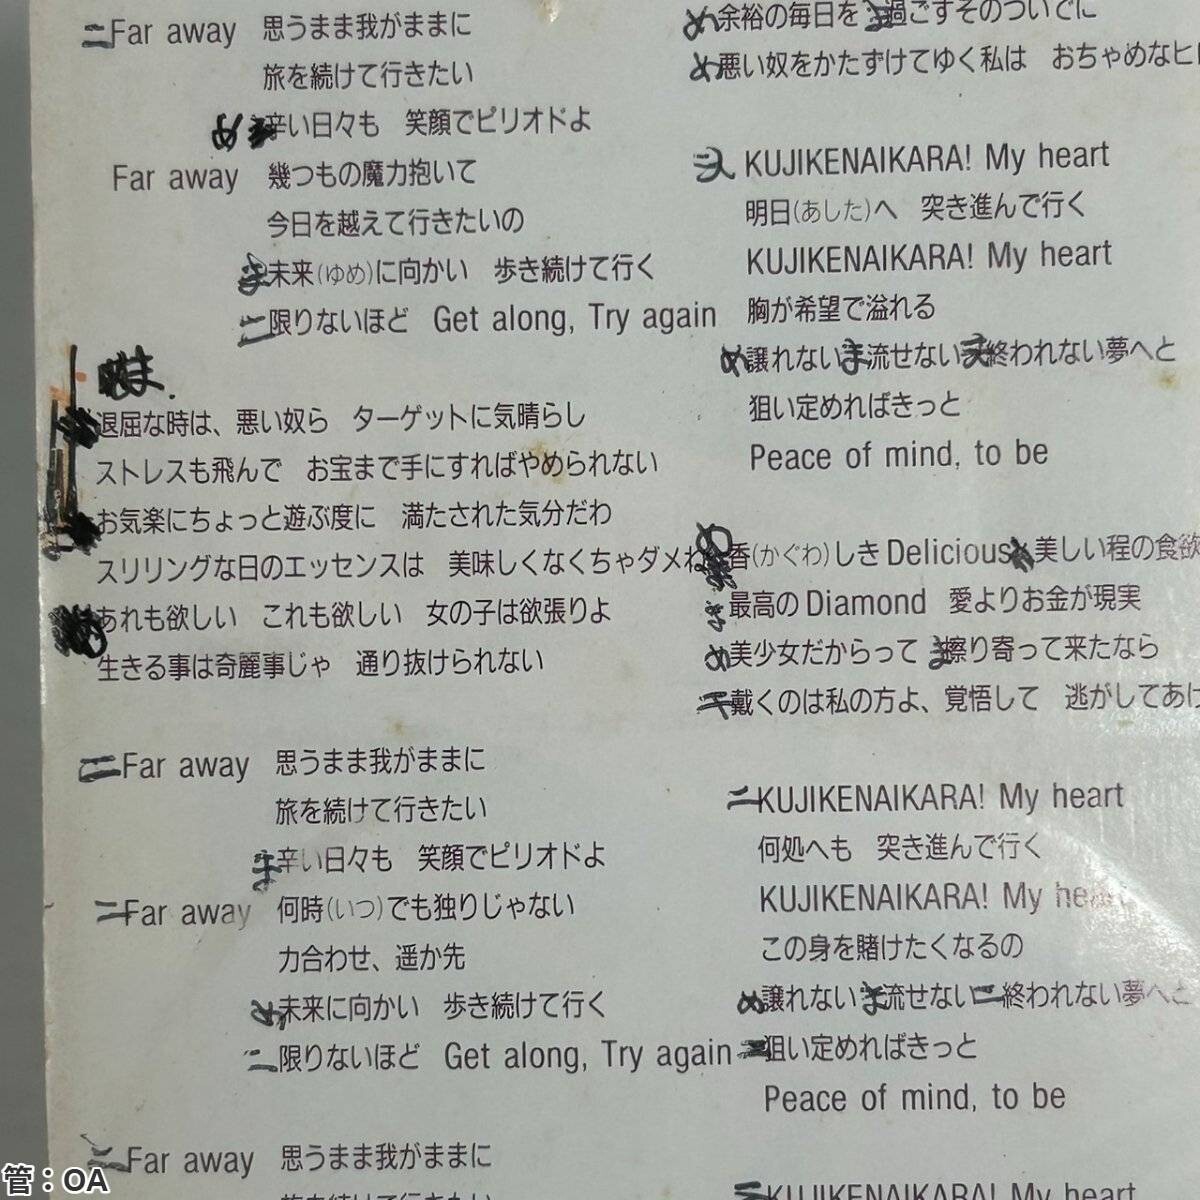 二Far away 思うまま我がままに
旅を続けて行きたい
め 辛い日々も 笑顔でピリオドよ
Far away 幾つもの魔力抱いて
今日を越えて行きたいの
ま未来(ゆめ)に向かい 歩き続けて行く
二限りないほど Get along, Try again
ま.
退屈な時は、悪い奴ら ターゲットに気晴らし
ストレスも飛んで お宝まで手にすればやめられない
お気楽にちょっと遊ぶ度に 満たされた気分だわ
スリリングな日のエッセンスは 美味しくなくちゃダメね
あれも欲しい これも欲しい 女の子は欲張りよ
生きる事は奇麗事じゃ 通り抜けられない
二Far away 思うまま我がままに
旅を続けて行きたい
ま辛い日々も 笑顔でピリオドよ
二Far away 何時(いつ)でも独りじゃない
力合わせ、遥か先
め未来に向かい 歩き続けて行く
二限りないほど Get along, Try again
二Far away 思うまま我がままに
め余裕の毎日を ま過ごすそのついでに
め悪い奴をかたずけてゆく私は おちゃめなヒ
KUJIKENAIKARA! My heart
明日(あした)へ 突き進んで行く
KUJIKENAIKARA! My heart
胸が希望で溢れる
め譲れないま流せない終われない夢へと
狙い定めればきっと
Peace of mind, to be
め香(かぐわ)しきDelicious 美しい程の食欲
ま最高のDiamond 愛よりお金が現実
め美少女だからって ま擦り寄って来たなら
戴くのは私の方よ、覚悟して 逃がしてあげ
二KUJIKENAIKARA! My heart
何処へも 突き進んで行く
KUJIKENAIKARA! My heart
この身を賭けたくなるの
め譲れないま流せない二終われない夢へと
狙い定めればきっと
Peace of mind, to be
二KUJIKENAIKARA! My heart
管：OA